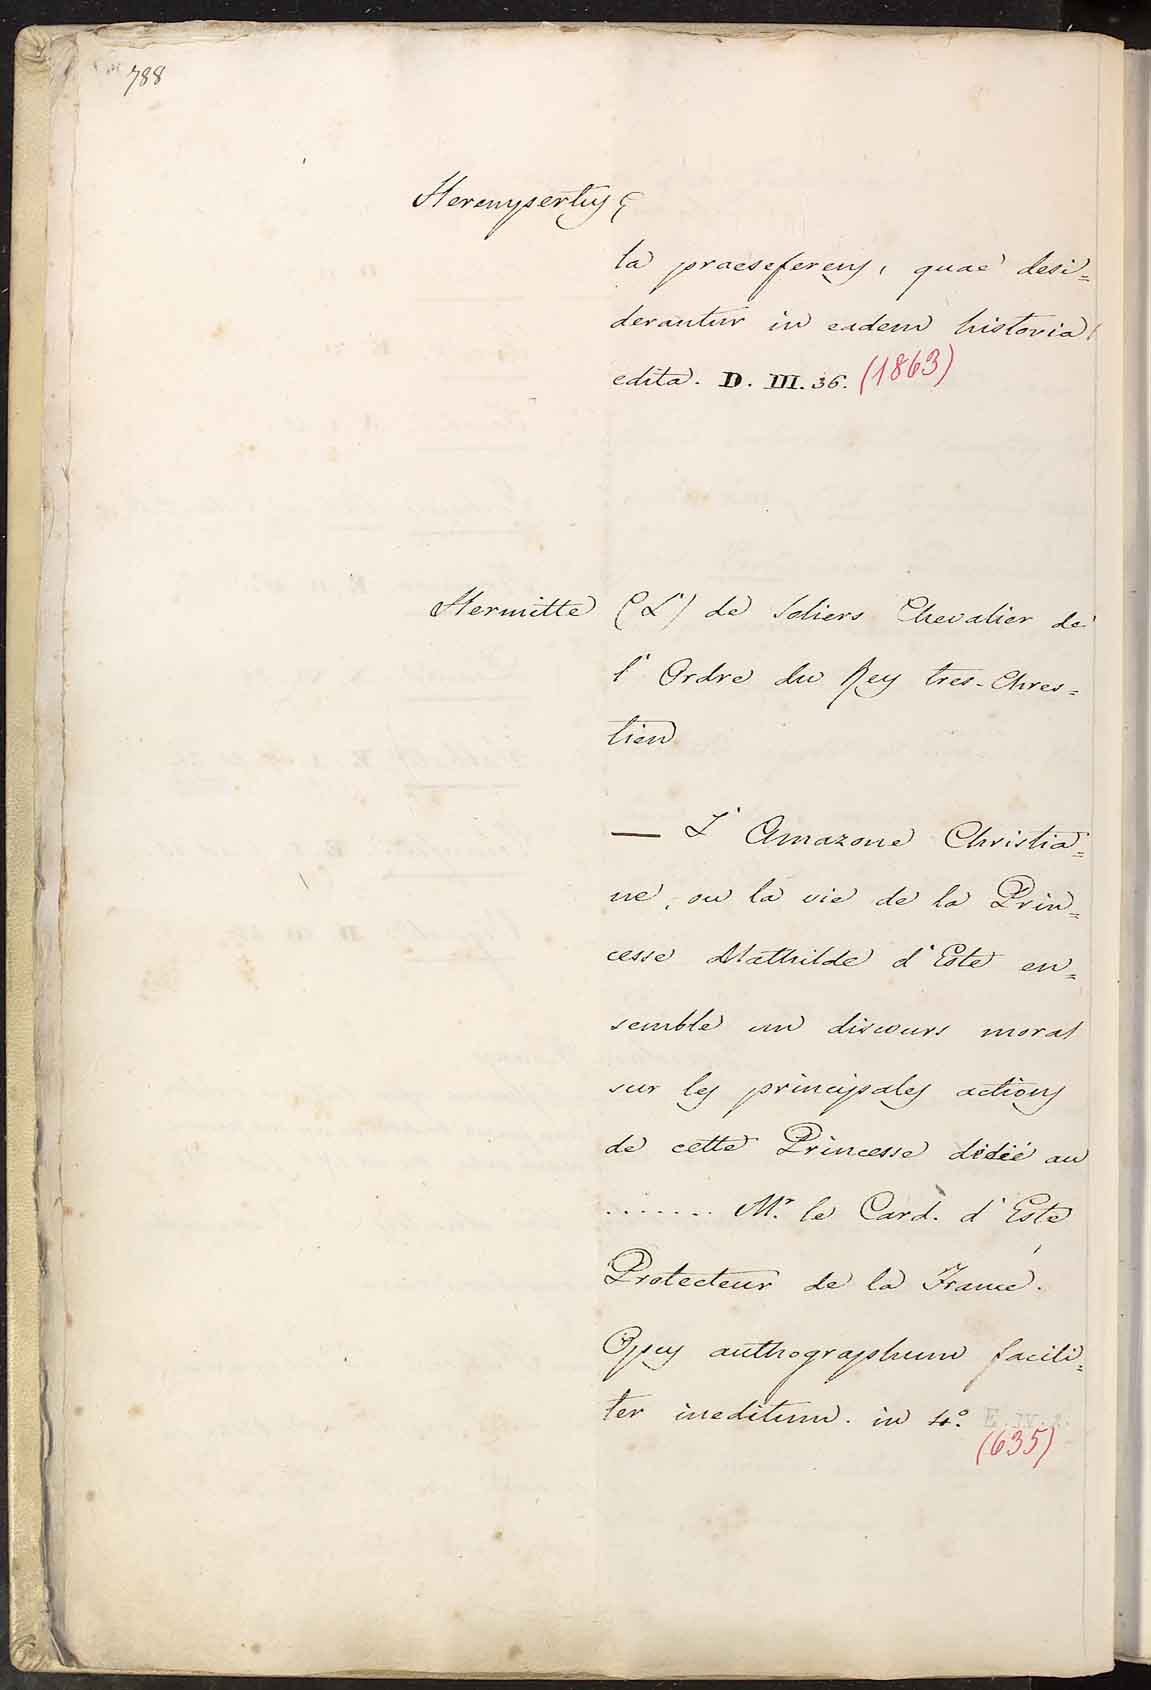 788
Herempertus
ta praeseferens, quae desi=
derantur in eadem historia
edita. D. III. 36. (1863)
Hermitte (L') de Soliers Chevalier de
l'Ordre du Rey tres-Chres=
tien
— L'Amazone Christia=
ne, ou la vie de la Prin=
cesse Mathilde d'Este en=
semble un discours moral
sur les principales actions
de cette Princesse dédié au
....... Mr. le Card. d'Este
Protecteur de la France.
Opus authographum facili=
ter ineditum. in 4.° E. IV. 2.
(635)